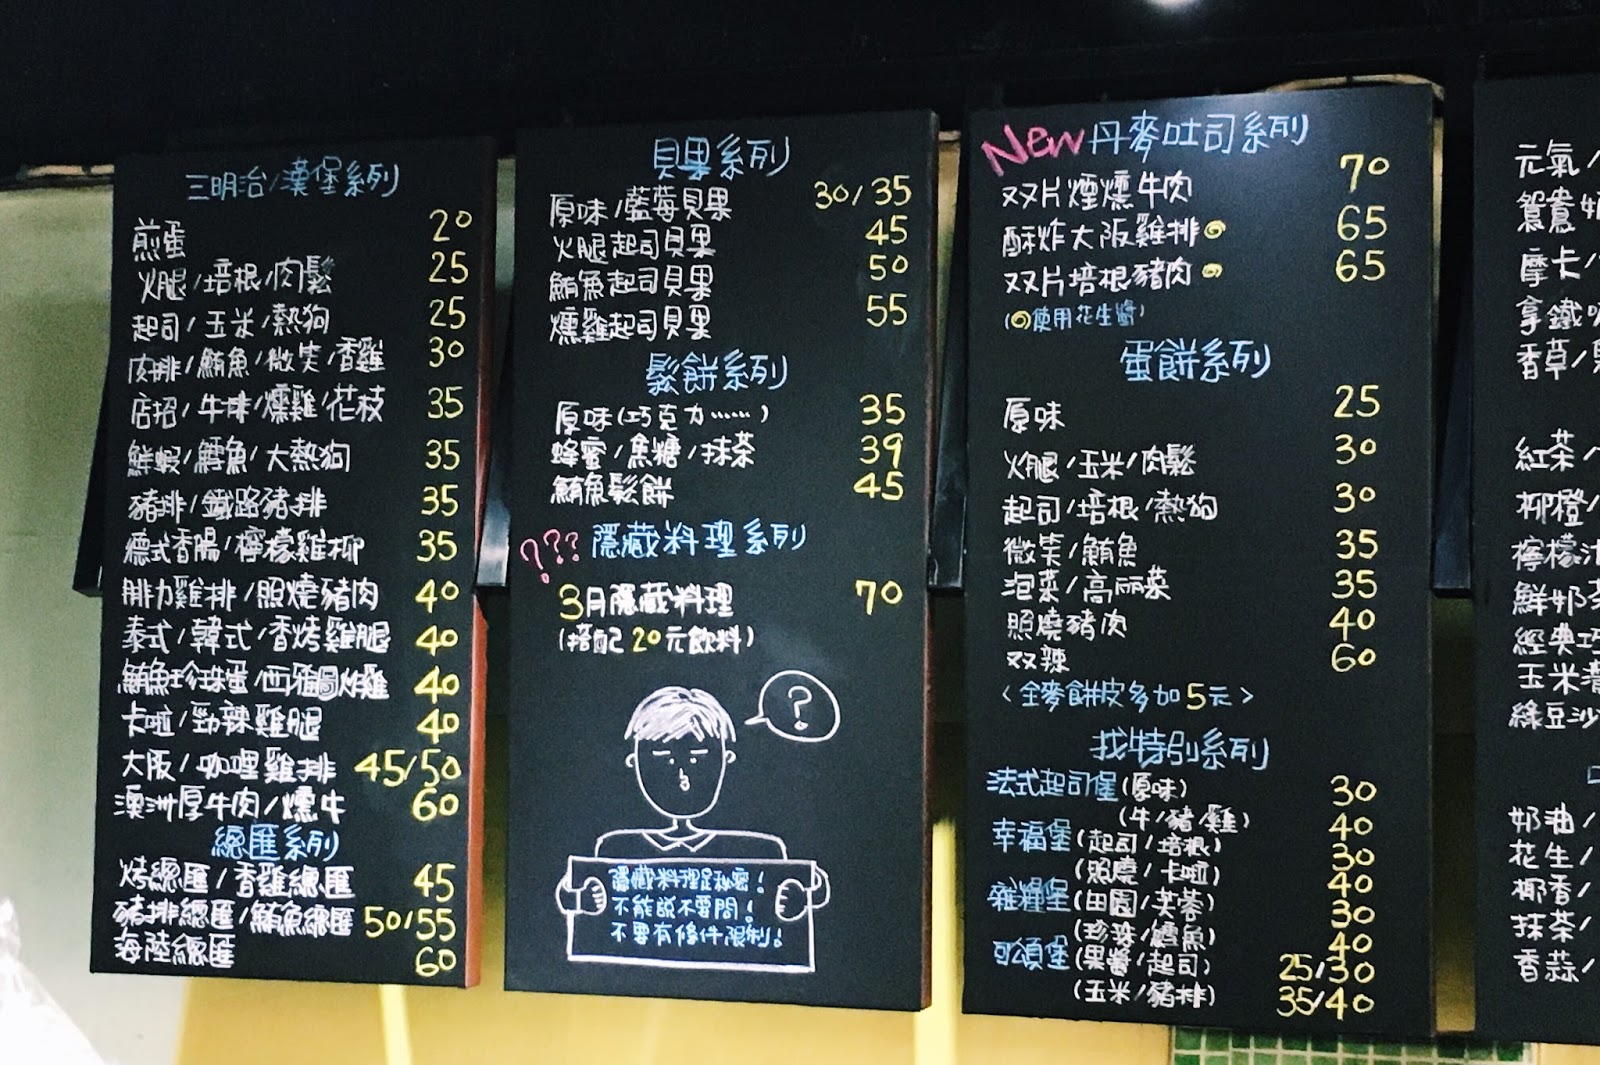 三明治/漢堡系列
煎蛋 20
火腿/培根/肉鬆 25
起司/玉米/熱狗 25
肉排/鮪魚/微笑/香雞 30
店招/牛排/燻雞/花枝 35
鮮蝦/鱈魚/大熱狗 35
豬排/鐵路豬排 35
德式香腸/檸檬雞柳 35
腓力雞排/照燒豬肉 40
泰式/韓式/香烤雞腿 40
鮪魚珍珠蛋/西雅圖炸雞 40
卡啦/勁辣雞腿 40
大阪/咖哩雞排 45/50
澳洲厚牛肉/燻牛 60
總匯系列
烤總匯/香雞總匯 45
豬排總匯/鮪魚總匯 50/55
海陸總匯 60
貝果系列
原味/藍莓貝果 30/35
火腿起司貝果 45
鮪魚起司貝果 50
燻雞起司貝果 55
鬆餅系列
原味(巧克力……) 35
蜂蜜/焦糖/抹茶 39
鮪魚鬆餅 45
??? 隱藏料理系列
3月隱藏料理 70
(搭配20元飲料)
?
隱藏料理是秘密!
不能說不要問!
不要有條件限制!
New 丹麥吐司系列
双片煙燻牛肉 70
酥炸大阪雞排 65
双片培根豬肉 65
(使用花生醬)
蛋餅系列
原味 25
火腿/玉米/肉鬆 30
起司/培根/熱狗 30
微笑/鮪魚 35
泡菜/高丽菜 35
照燒豬肉 40
双辣 60
<全麥餅皮多加5元>
找特別系列
法式起司堡(原味) 30
(牛/豬/雞) 40
幸福堡(起司/培根) 30
(照燒/卡啦) 40
雜糧堡(田園/芙蓉) 30
(珍珠/鱈魚) 40
可頌堡(果醬/起司) 25/30
(玉米/豬排) 35/40
元氣/
鴛鴦奶
摩卡/
拿鐵
香草/
紅茶/
柳橙/
檸檬
鮮奶茶
經典巧
玉米濃
綠豆沙
奶油/
花生/
椰香/
抹茶/
香蒜/